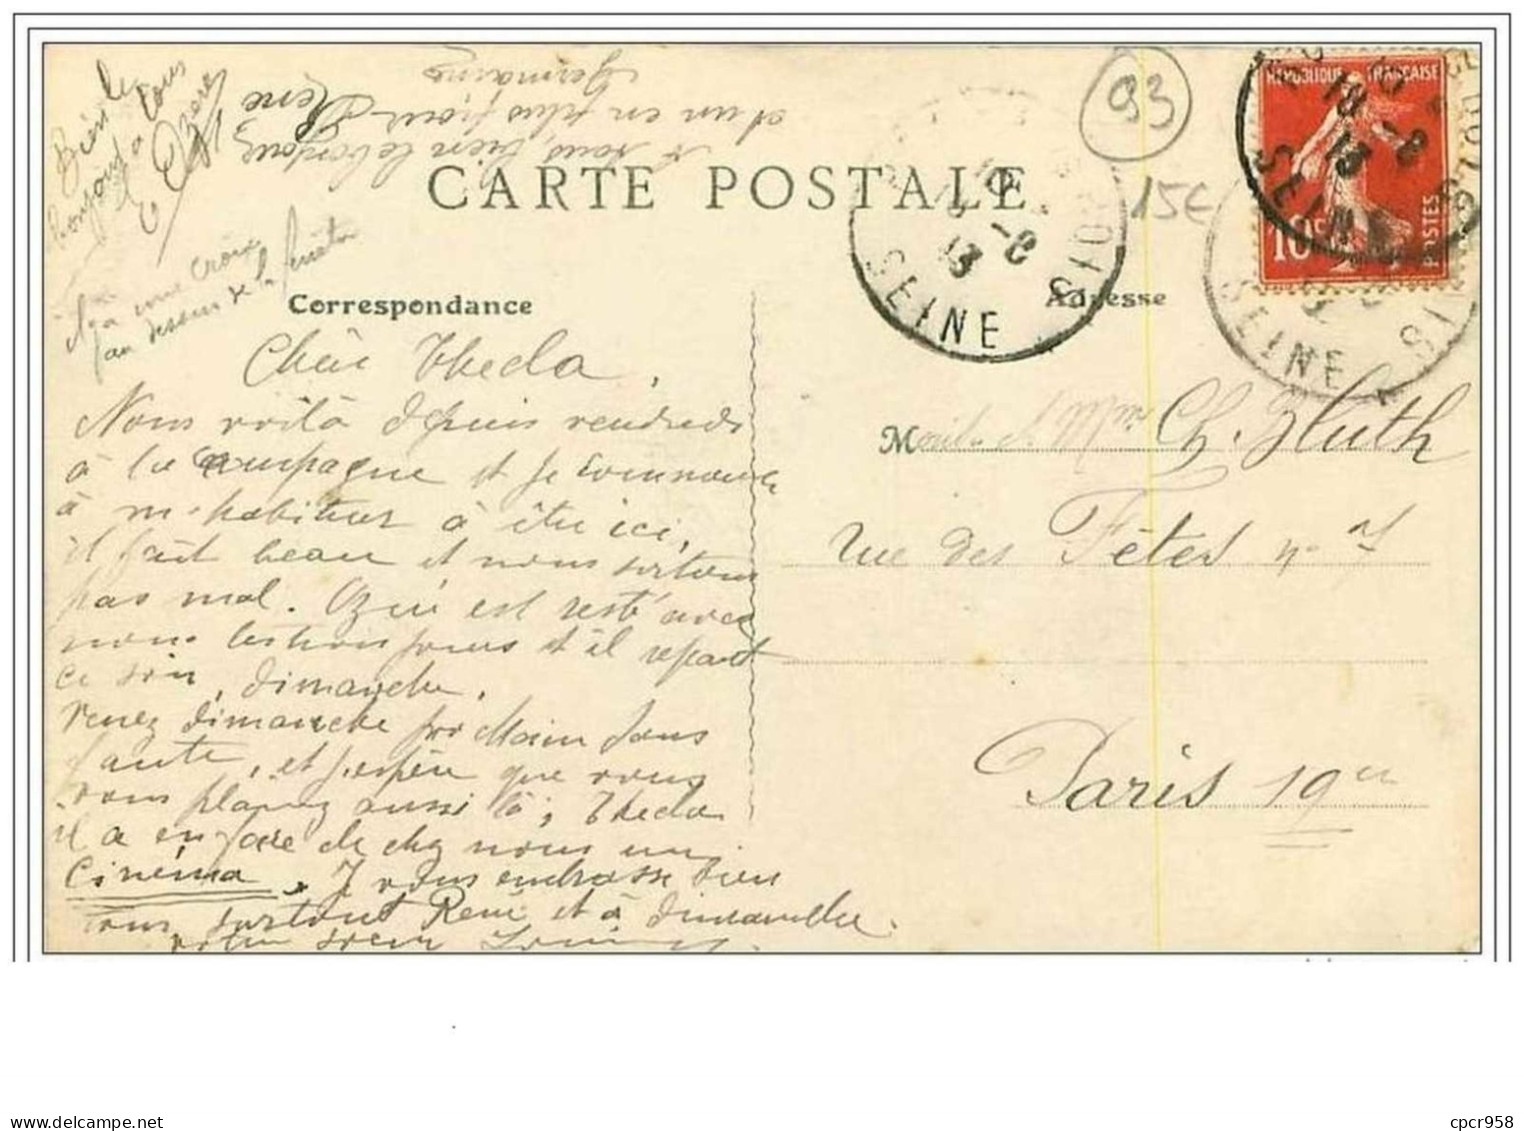 Bien le
bonjour à tous
Ozere
il y a une croix
au dessus de la fenêtre
A vous bien le bonjour
et un en plus pour René
Germaine
CARTE POSTALE
93
15€
REPUBLIQUE FRANÇAISE
10c
POSTES
10 - 8
13
SEINE
Correspondance
Adresse
Chère Thecla,
Nous voilà depuis vendredi
à la campagne et je commence
à m'habituer à être ici,
il fait beau et nous sortons
pas mal. est resté avec
nous les trois jours et il repart
ce soir, dimanche.
Venez dimanche prochain sans
faute, et j'espère que vous
vous plairez aussi là; Thecla
il y a en face de chez nous un
Cinéma. Je vous embrasse bien
tous surtout René et à dimanche.
votre soeur
M Ch. Huth
rue des Fêtes n°
Paris 19e
cpcr958